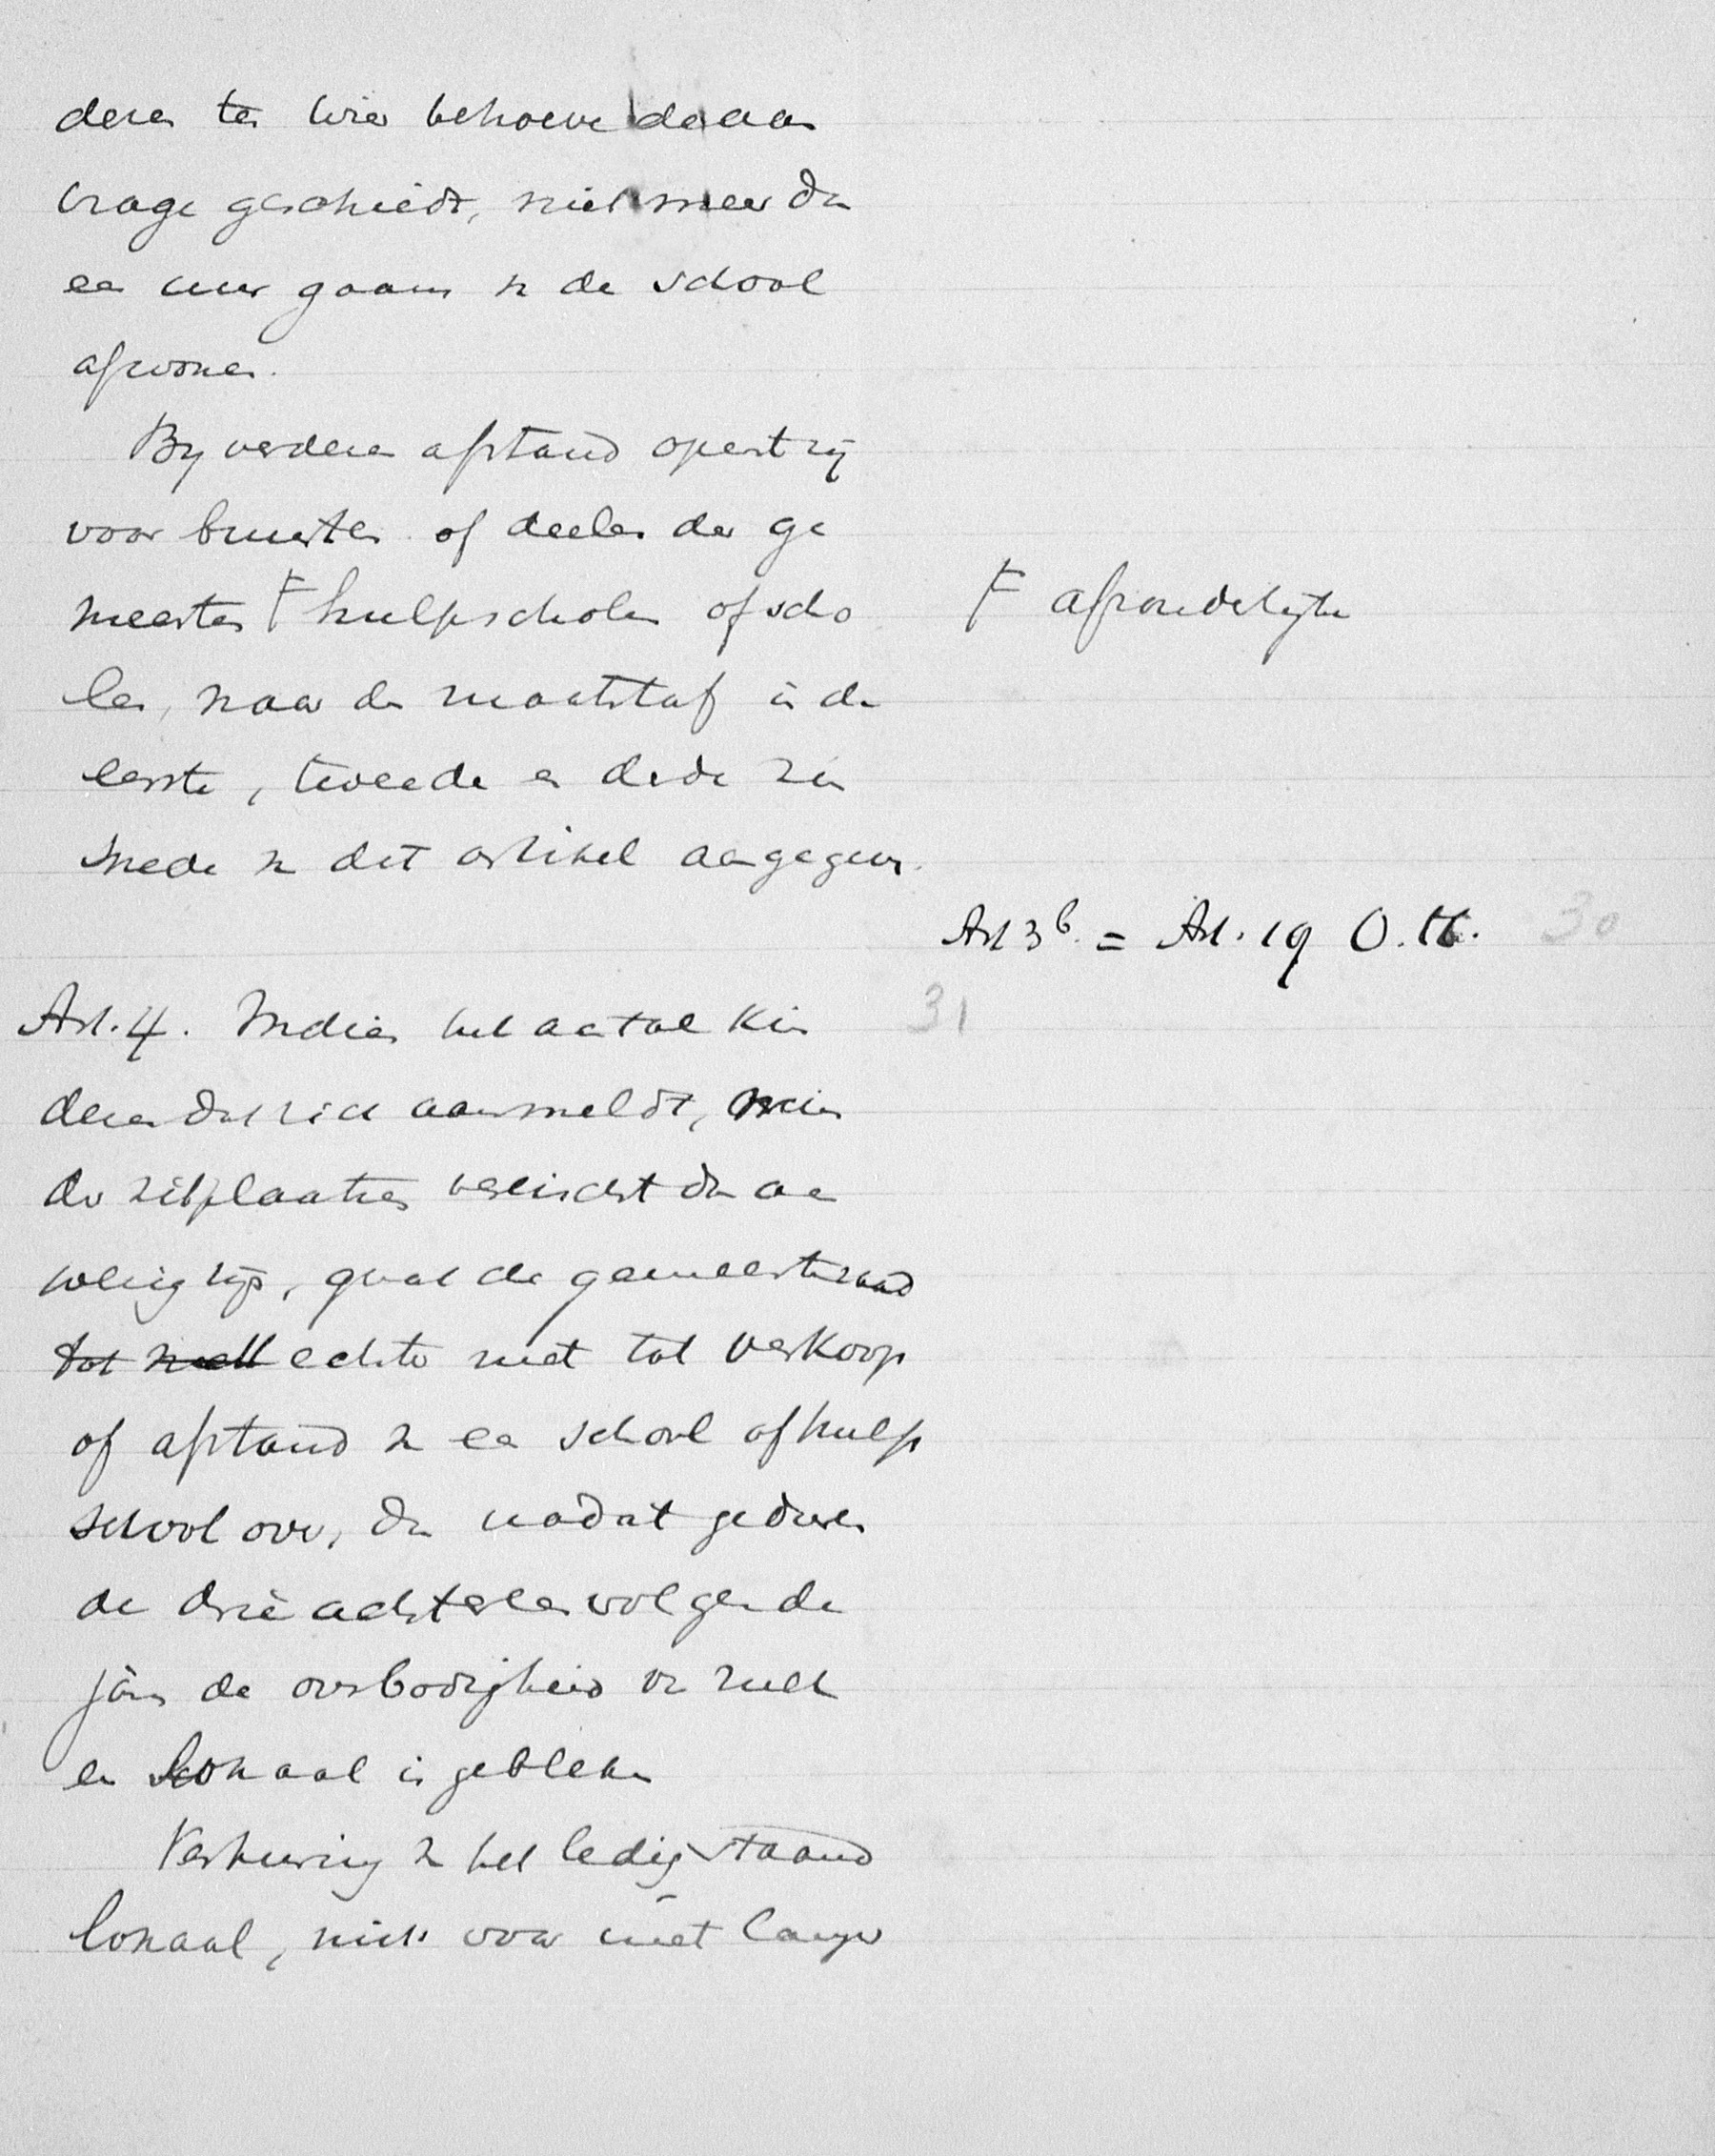 deren ten wier behoeve de aan
vrage geschiedt, niet meer dan
een uur gaans van de school
afwonen.
By verderen afstand opent zij
voor buurten of deelen der ge
meenten F hulpscholen of scho
F afzonderlijke
len, naar den maatstaf in de
eerste, tweede en derde zin
snede van dit artikel aangegeven.
Art 3b. = Art. 19 O.W. 30
Art. 4. Indien het aantal kin 31
deren dat zich aanmeldt, min
der zitplaatsen vereischt dan aan
wezig zijn, gaat de gemeenteraad
tot echter niet tot verkoop
of afstand van een school of hulp
school over, dan nadat geduren
de drie achtereenvolgende
jaren de overbodigheid van zulk
een lokaal is gebleken
Verhuring van het ledig staand
lokaal, mits voor niet langer